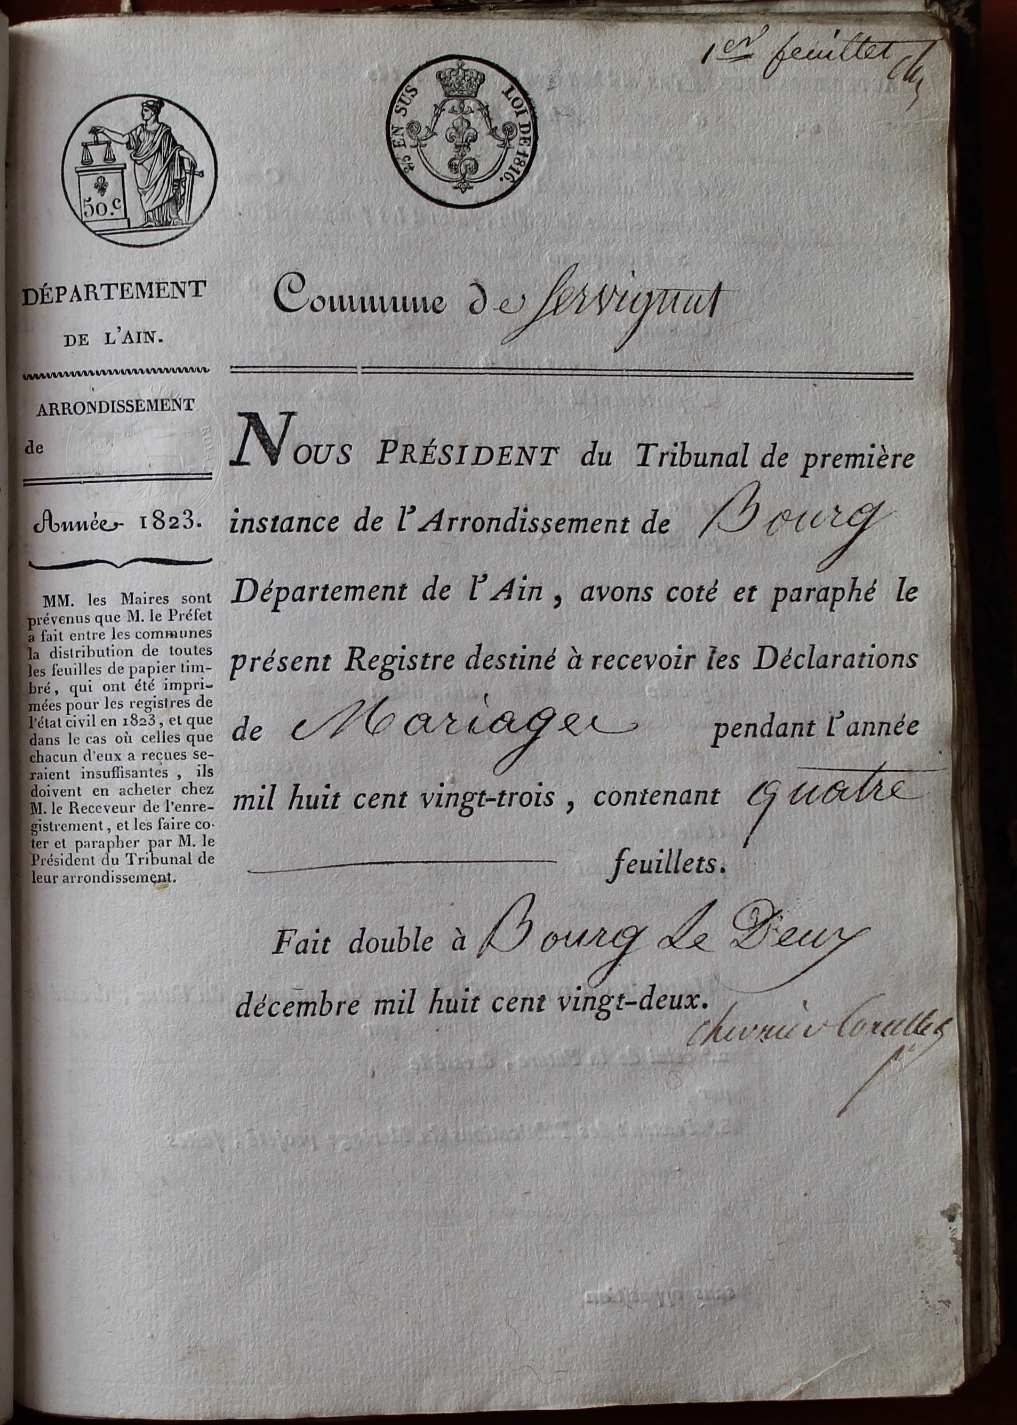 1er feuillet
EN SUS
LOI DE 1816.
50.c
DÉPARTEMENT
DE L'AIN.
ARRONDISSEMENT
de
Année 1823.
MM. les Maires sont
prévenus que M. le Préfet
a fait entre les communes
la distribution de toutes
les feuilles de papier tim-
bré, qui ont été impri-
mées pour les registres de
l'état civil en 1823, et que
dans le cas où celles que
chacun d'eux a reçues se-
raient insuffisantes, ils
doivent en acheter chez
M. le Receveur de l'enre-
gistrement, et les faire co-
ter et parapher par M. le
Président du Tribunal de
leur arrondissement.
Commune de Servignat
NOUS PRÉSIDENT du Tribunal de première
instance de l'Arrondissement de Bourg
Département de l'Ain, avons coté et paraphé le
présent Registre destiné à recevoir les Déclarations
de Mariages pendant l'année
mil huit cent vingt-trois, contenant quatre
feuillets.
Fait double à Bourg Le Deux
décembre mil huit cent vingt-deux.